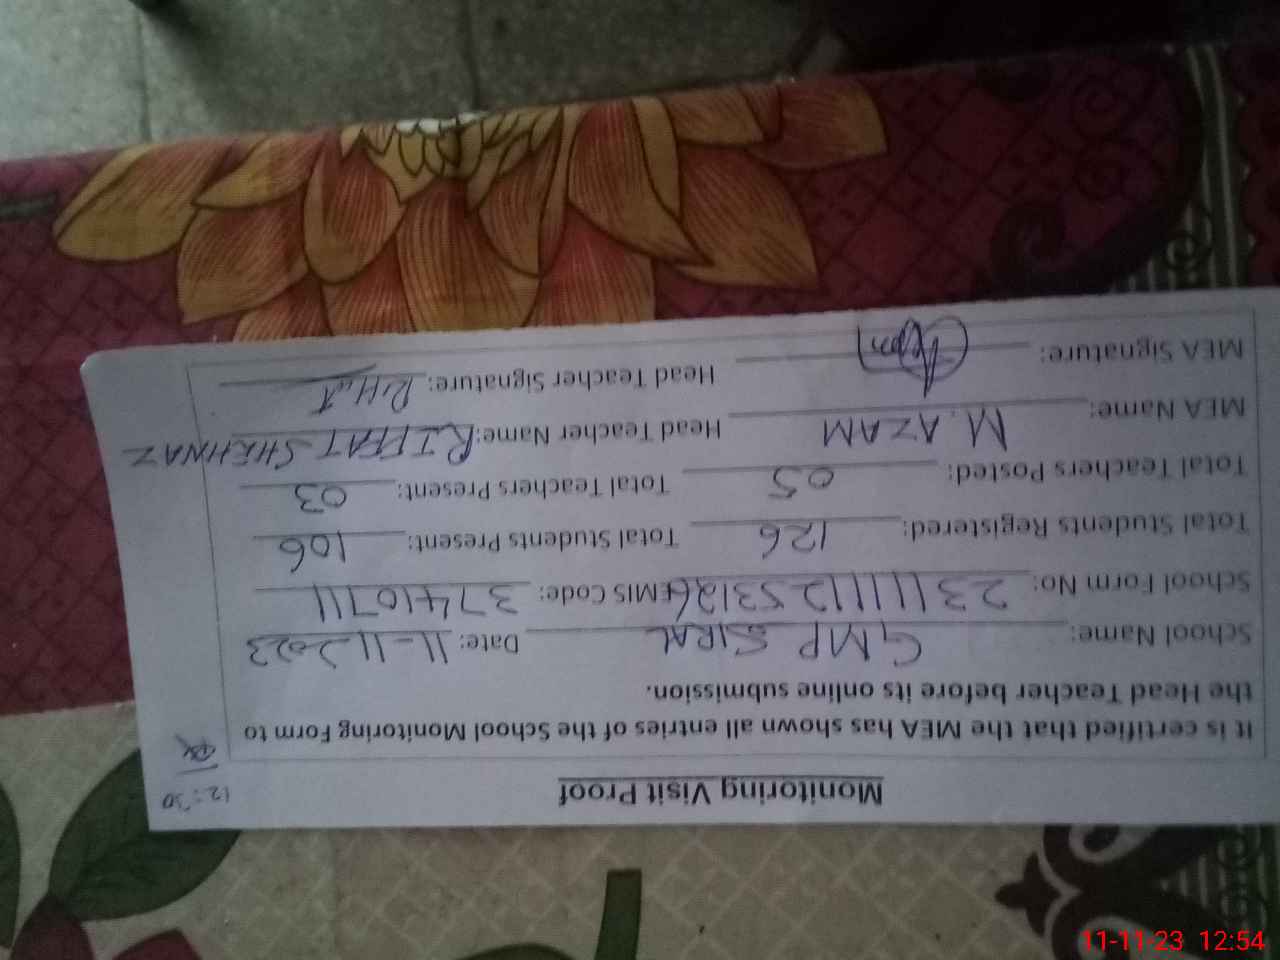 Monitoring Visit Proof
12:30
It is certified that the MEA has shown all entries of the School Monitoring Form to
the Head Teacher before its online submission.
School Name: GMP SIRAL Date: 11-11-2023
School Form No: 23111111253126 EMIS Code: 37410711
Total Students Registered: 126 Total Students Present: 106
Total Teachers Posted: 05 Total Teachers Present: 03
MEA Name: M. AZAM Head Teacher Name: RIFFAT SHEHNAZ
MEA Signature: Head Teacher Signature: Riffat
11-11-23 12:54